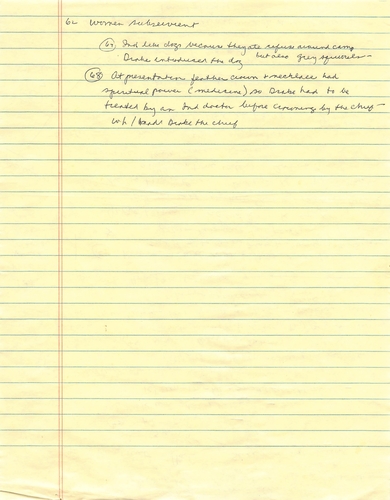 62 Women subservient
67 Ind like dogs because they ate refuse around camp
Drake introduced the dog but also grey squirrels —
68 At presentation feather crown & necklace had
spiritual power (medicine) so Drake had to be
treated by an Ind doctor before crowning by the chief —
Drake the chief